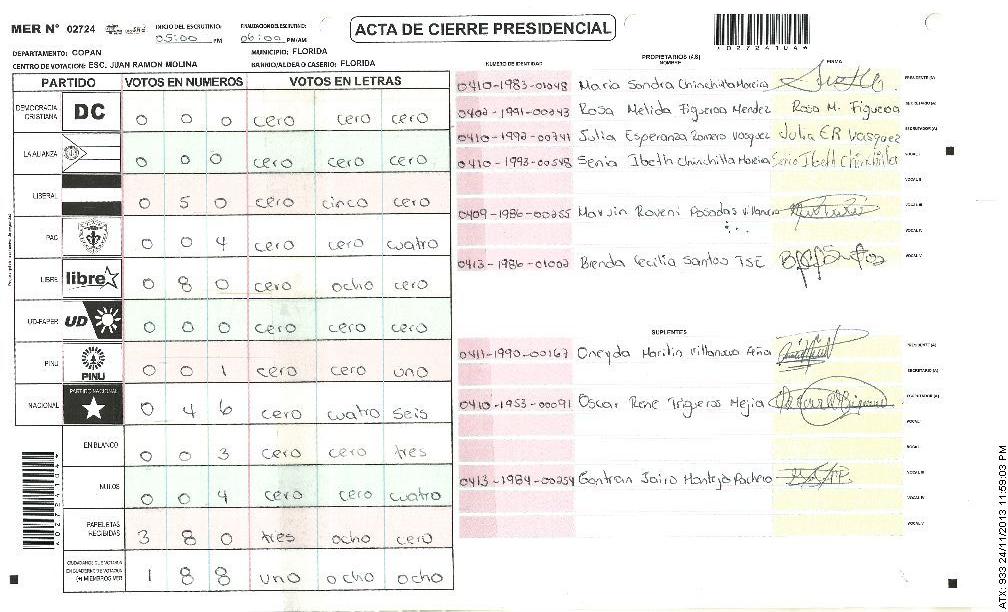 MER Nº 02724
INICIO DEL ESCRUTINIO:
05:00 PM
FINALIZACION DEL ESCRUTINIO:
06:00 PM/AM
ACTA DE CIERRE PRESIDENCIAL
DEPARTAMENTO: COPAN
MUNICIPIO: FLORIDA
CENTRO DE VOTACION: ESC. JUAN RAMON MOLINA
BARRIO/ALDEA O CASERIO: FLORIDA
PARTIDO VOTOS EN NUMEROS VOTOS EN LETRAS
DEMOCRACIA CRISTIANA DC 0 0 0 cero cero cero
LA ALIANZA 0 0 0 cero cero cero
LIBERAL 0 5 0 cero cinco cero
PAC 0 0 4 cero cero cuatro
LIBRE libre 0 8 0 cero ocho cero
UD-FAPER UD 0 0 0 cero cero cero
PINU PINU 0 0 1 cero cero uno
NACIONAL PARTIDO NACIONAL 0 4 6 cero cuatro seis
EN BLANCO 0 0 3 cero cero tres
NULOS 0 0 4 cero cero cuatro
PAPELETAS RECIBIDAS 3 8 0 tres ocho cero
CIUDADANOS QUE VOTARON EN CUADERNO DE VOTACION (+) MIEMBROS MER 1 8 8 uno ocho ocho
NUMERO DE IDENTIDAD PROPIETARIOS (AS) NOMBRE FIRMA
0410-1983-01048 Maria Sandra Chinchilla Moreira PRESIDENTE (A)
0402-1991-00243 Rosa Melida Figueroa Mendez Rosa M. Figueroa SECRETARIO (A)
0410-1992-00741 Julia Esperanza Romero Vasquez Julia ER Vasquez ESCRUTADOR (A)
0410-1993-00548 Senia Ibeth Chinchilla Moreira Senia Ibeth Chinchilla VOCAL I
VOCAL II
0409-1986-00255 Marvin Roveni Posadas Villanueva VOCAL III
VOCAL IV
0413-1986-01002 Brenda Cecilia Santos TSE VOCAL V
SUPLENTES
0411-1990-00167 Oneyda Marilin Villanueva Peña PRESIDENTE (A)
SECRETARIO (A)
0410-1953-00091 Oscar Rene Trigueros Mejia ESCRUTADOR (A)
VOCAL I
VOCAL II
0413-1984-00254 Gontran Jairo Pacheco VOCAL III
VOCAL IV
VOCAL V
ATX: 933 24/11/2013 11:59:03 PM